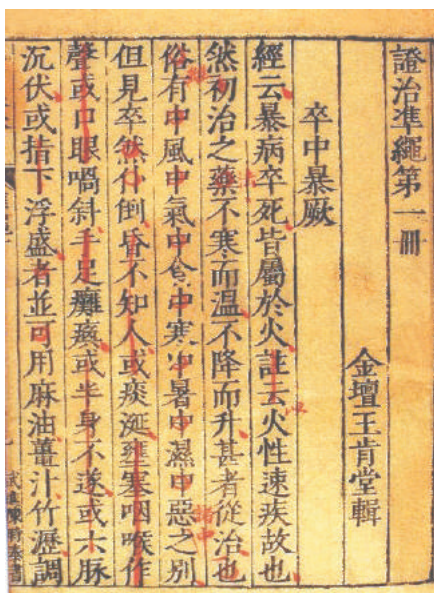 證治準繩第一冊
金壇王肯堂輯
卒中暴厥
經云暴病卒死皆屬於火註云火性速疾故也
然初治之藥不寒而溫不降而升甚者從治也
俗有中風中氣中食中寒中暑中濕中惡之別
但見卒然仆倒昏不知人或痰涎壅塞咽喉作
聲或口眼喎斜手足癱瘓或半身不遂或六脉
沉伏或指下浮盛者並可用麻油薑汁竹瀝調